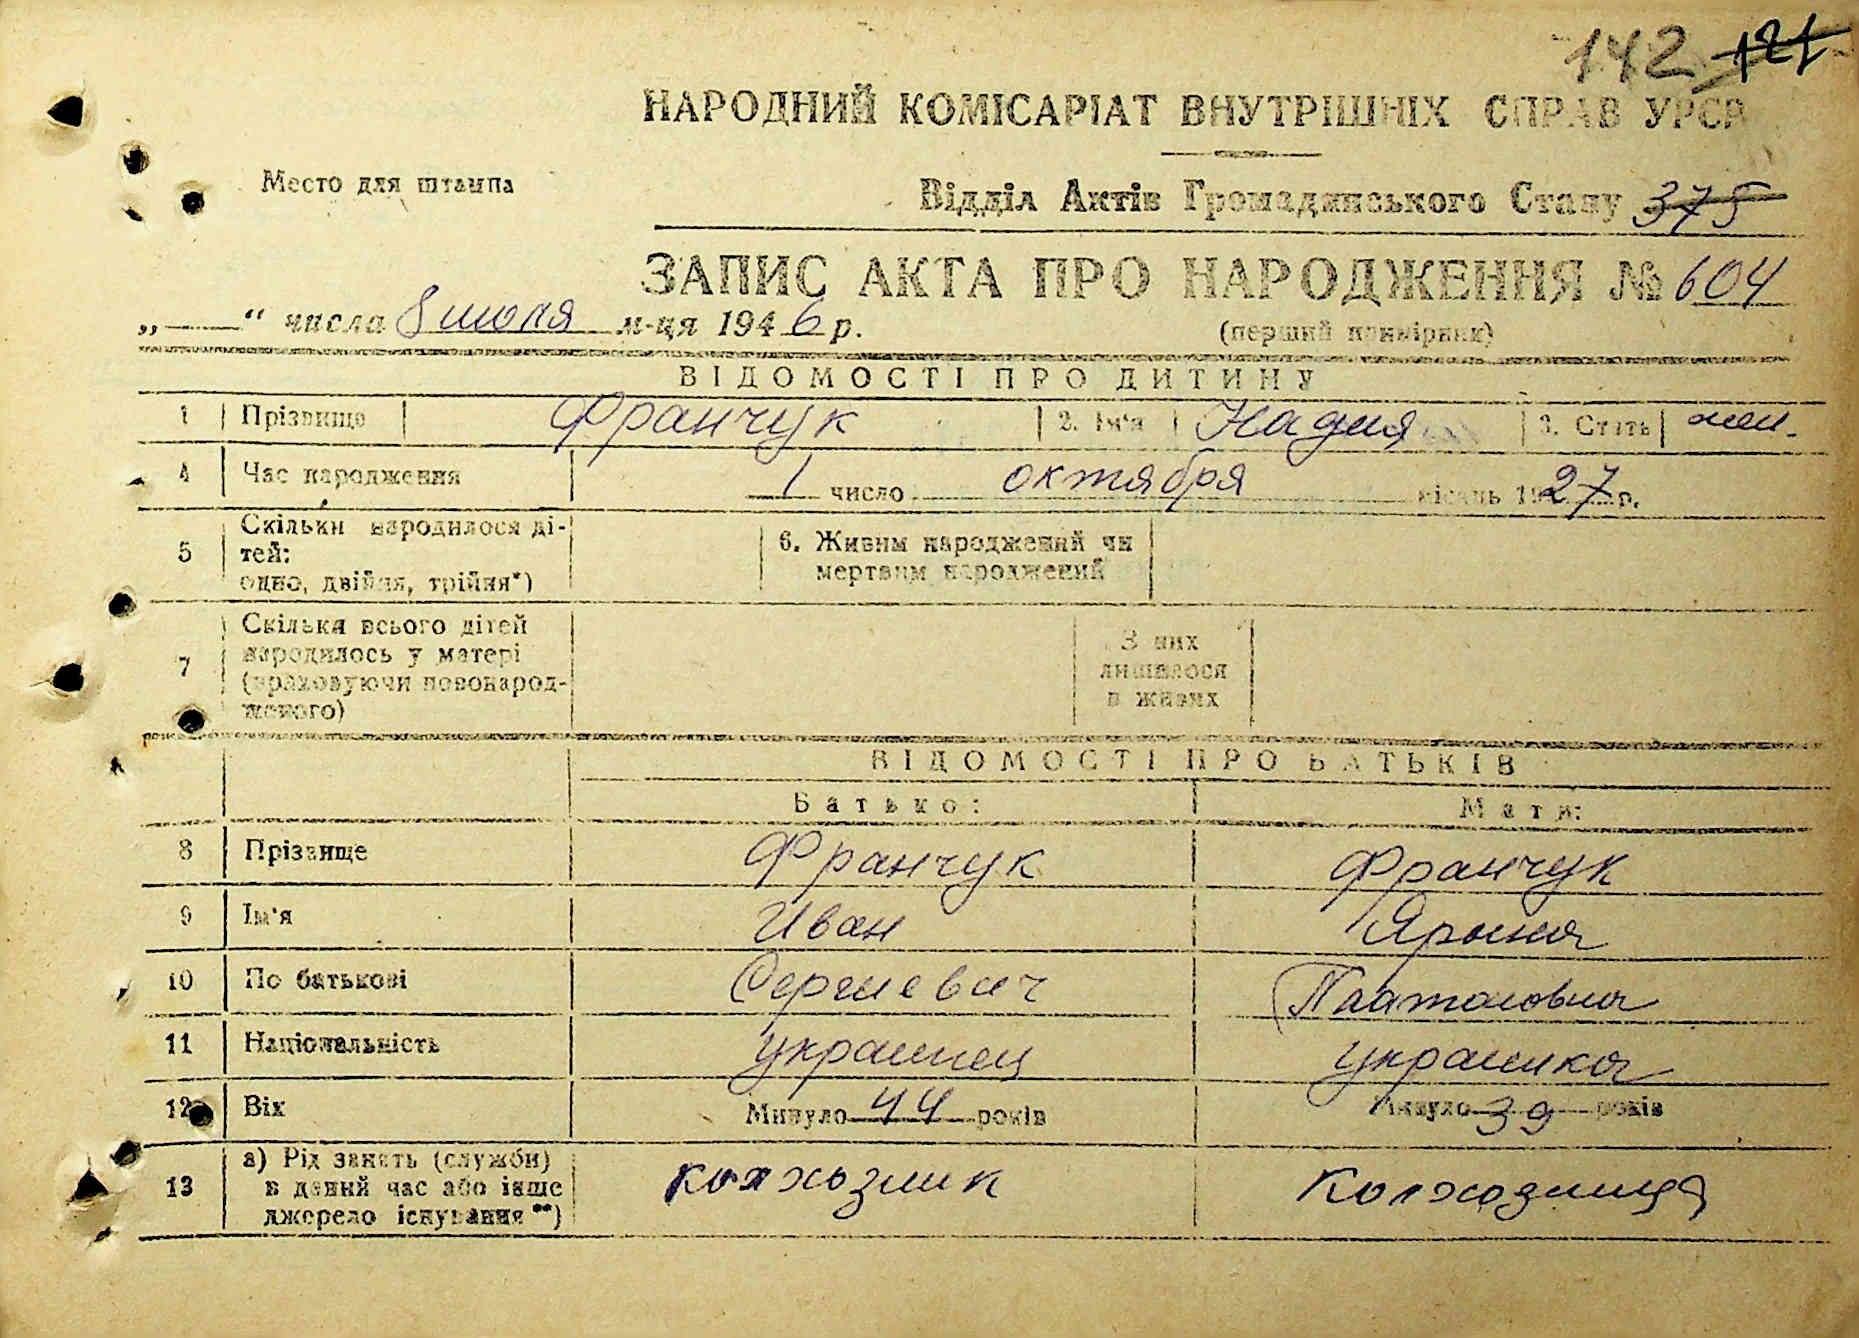 142 121
НАРОДНИЙ КОМІСАРІАТ ВНУТРІШНІХ СПРАВ УРСР
Место для штампа
Відділ Актів Громадянського Стану 375
ЗАПИС АКТА ПРО НАРОДЖЕННЯ № 604
„—“ числа 8 июля м-ця 1946 р.
(перший примірник)
ВІДОМОСТІ ПРО ДИТИНУ
1 Прізвище Франчук 2. Ім'я Надия 3. Стать жен.
4 Час народження 1 число октября місяць 1927 р.
5 Скільки народилося ді-
тей:
одно, двійня, трійня*)
6. Живим народжений чи
мертвим народжений
7 Скільки всього дітей
народилось у матері
(враховуючи новонарод-
женого)
З них
лишилося
в живих
ВІДОМОСТІ ПРО БАТЬКІВ
Батько: Мати:
8 Прізвище Франчук Франчук
9 Ім'я Иван Ярына
10 По батькові Сергиевич Платоновна
11 Національність украинец украинка
12 Вік Минуло 44 років Минуло 39 років
13 а) Рід занять (служби)
в даний час або інше
джерело існування**)
колхозник Колхозница